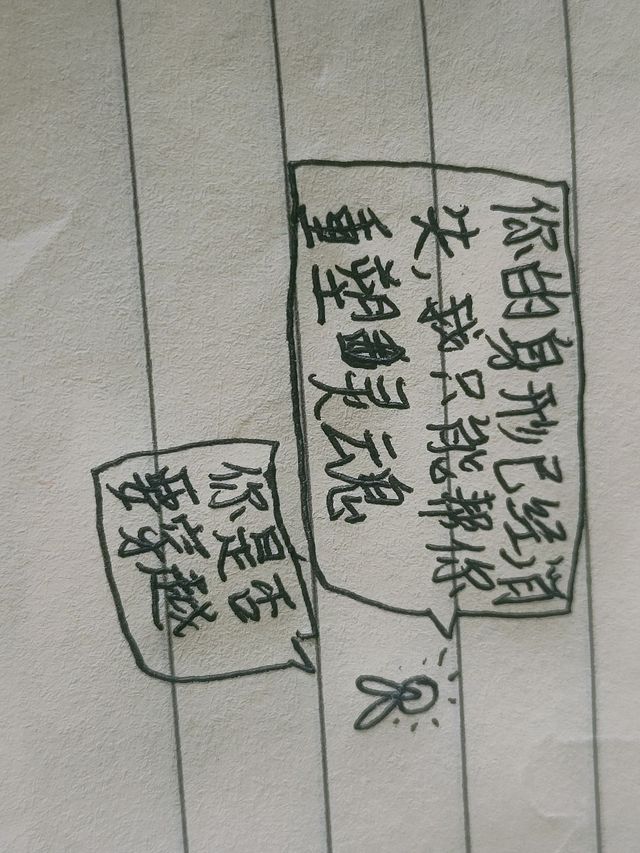 你的身形已经消
失，我只能帮你
重塑灵魂
你是否
要穿越